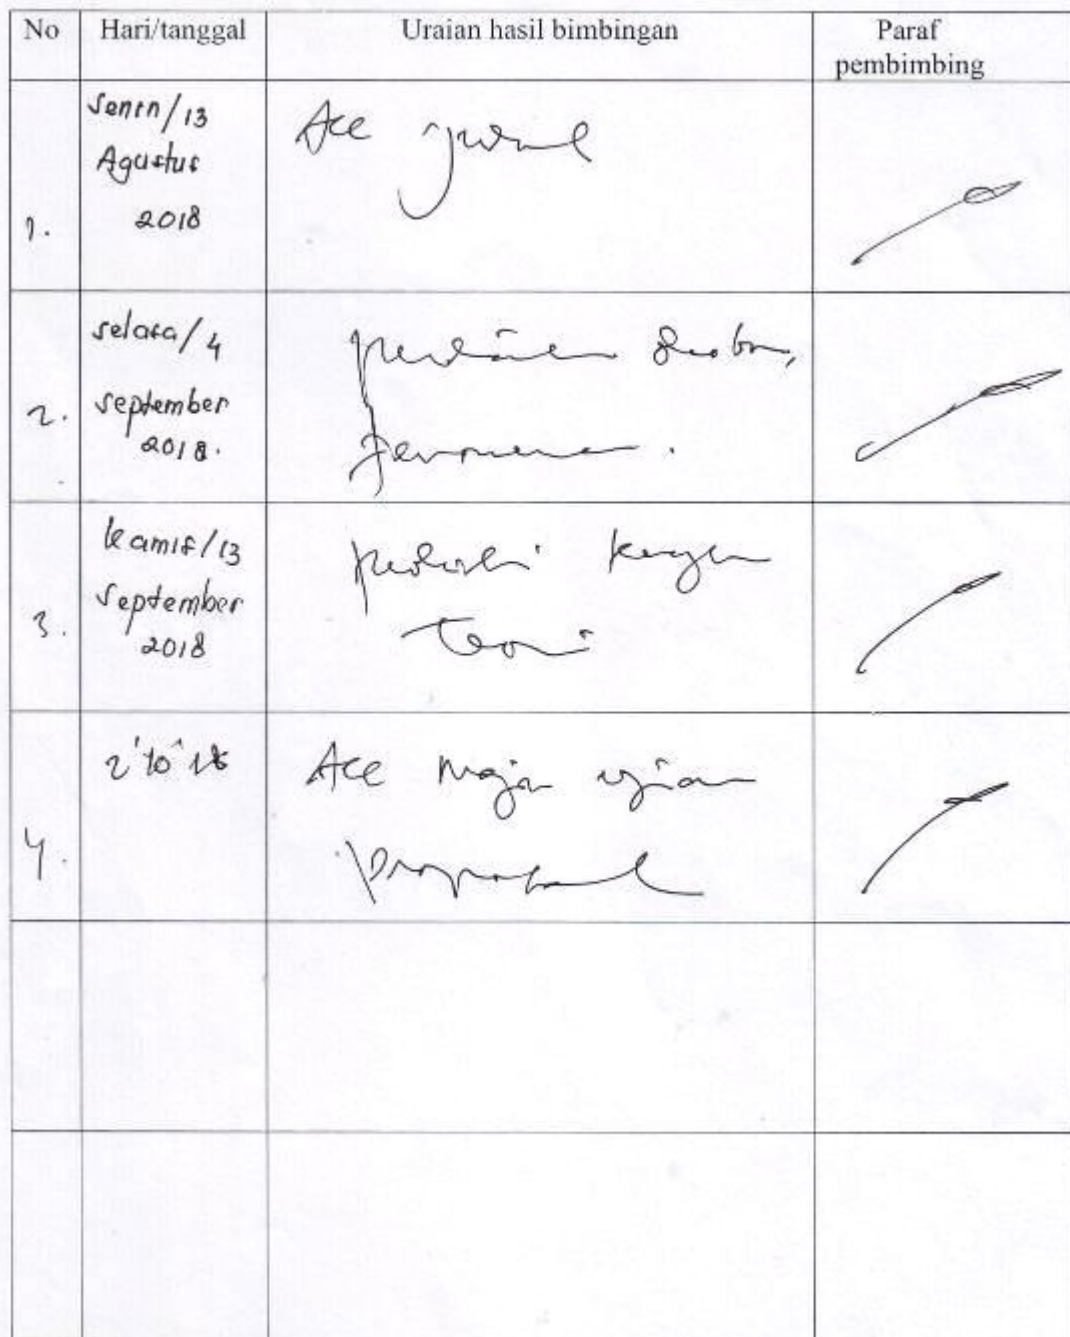 No Hari/tanggal Uraian hasil bimbingan Paraf
pembimbing
1. Senin/13
Agustus
2018
Acc
2. Selasa/4
September
2018.
Fenomena.
3. Kamis/13
September
2018
Teori
4. 2'10'18
Acc Maju ujian
proposal